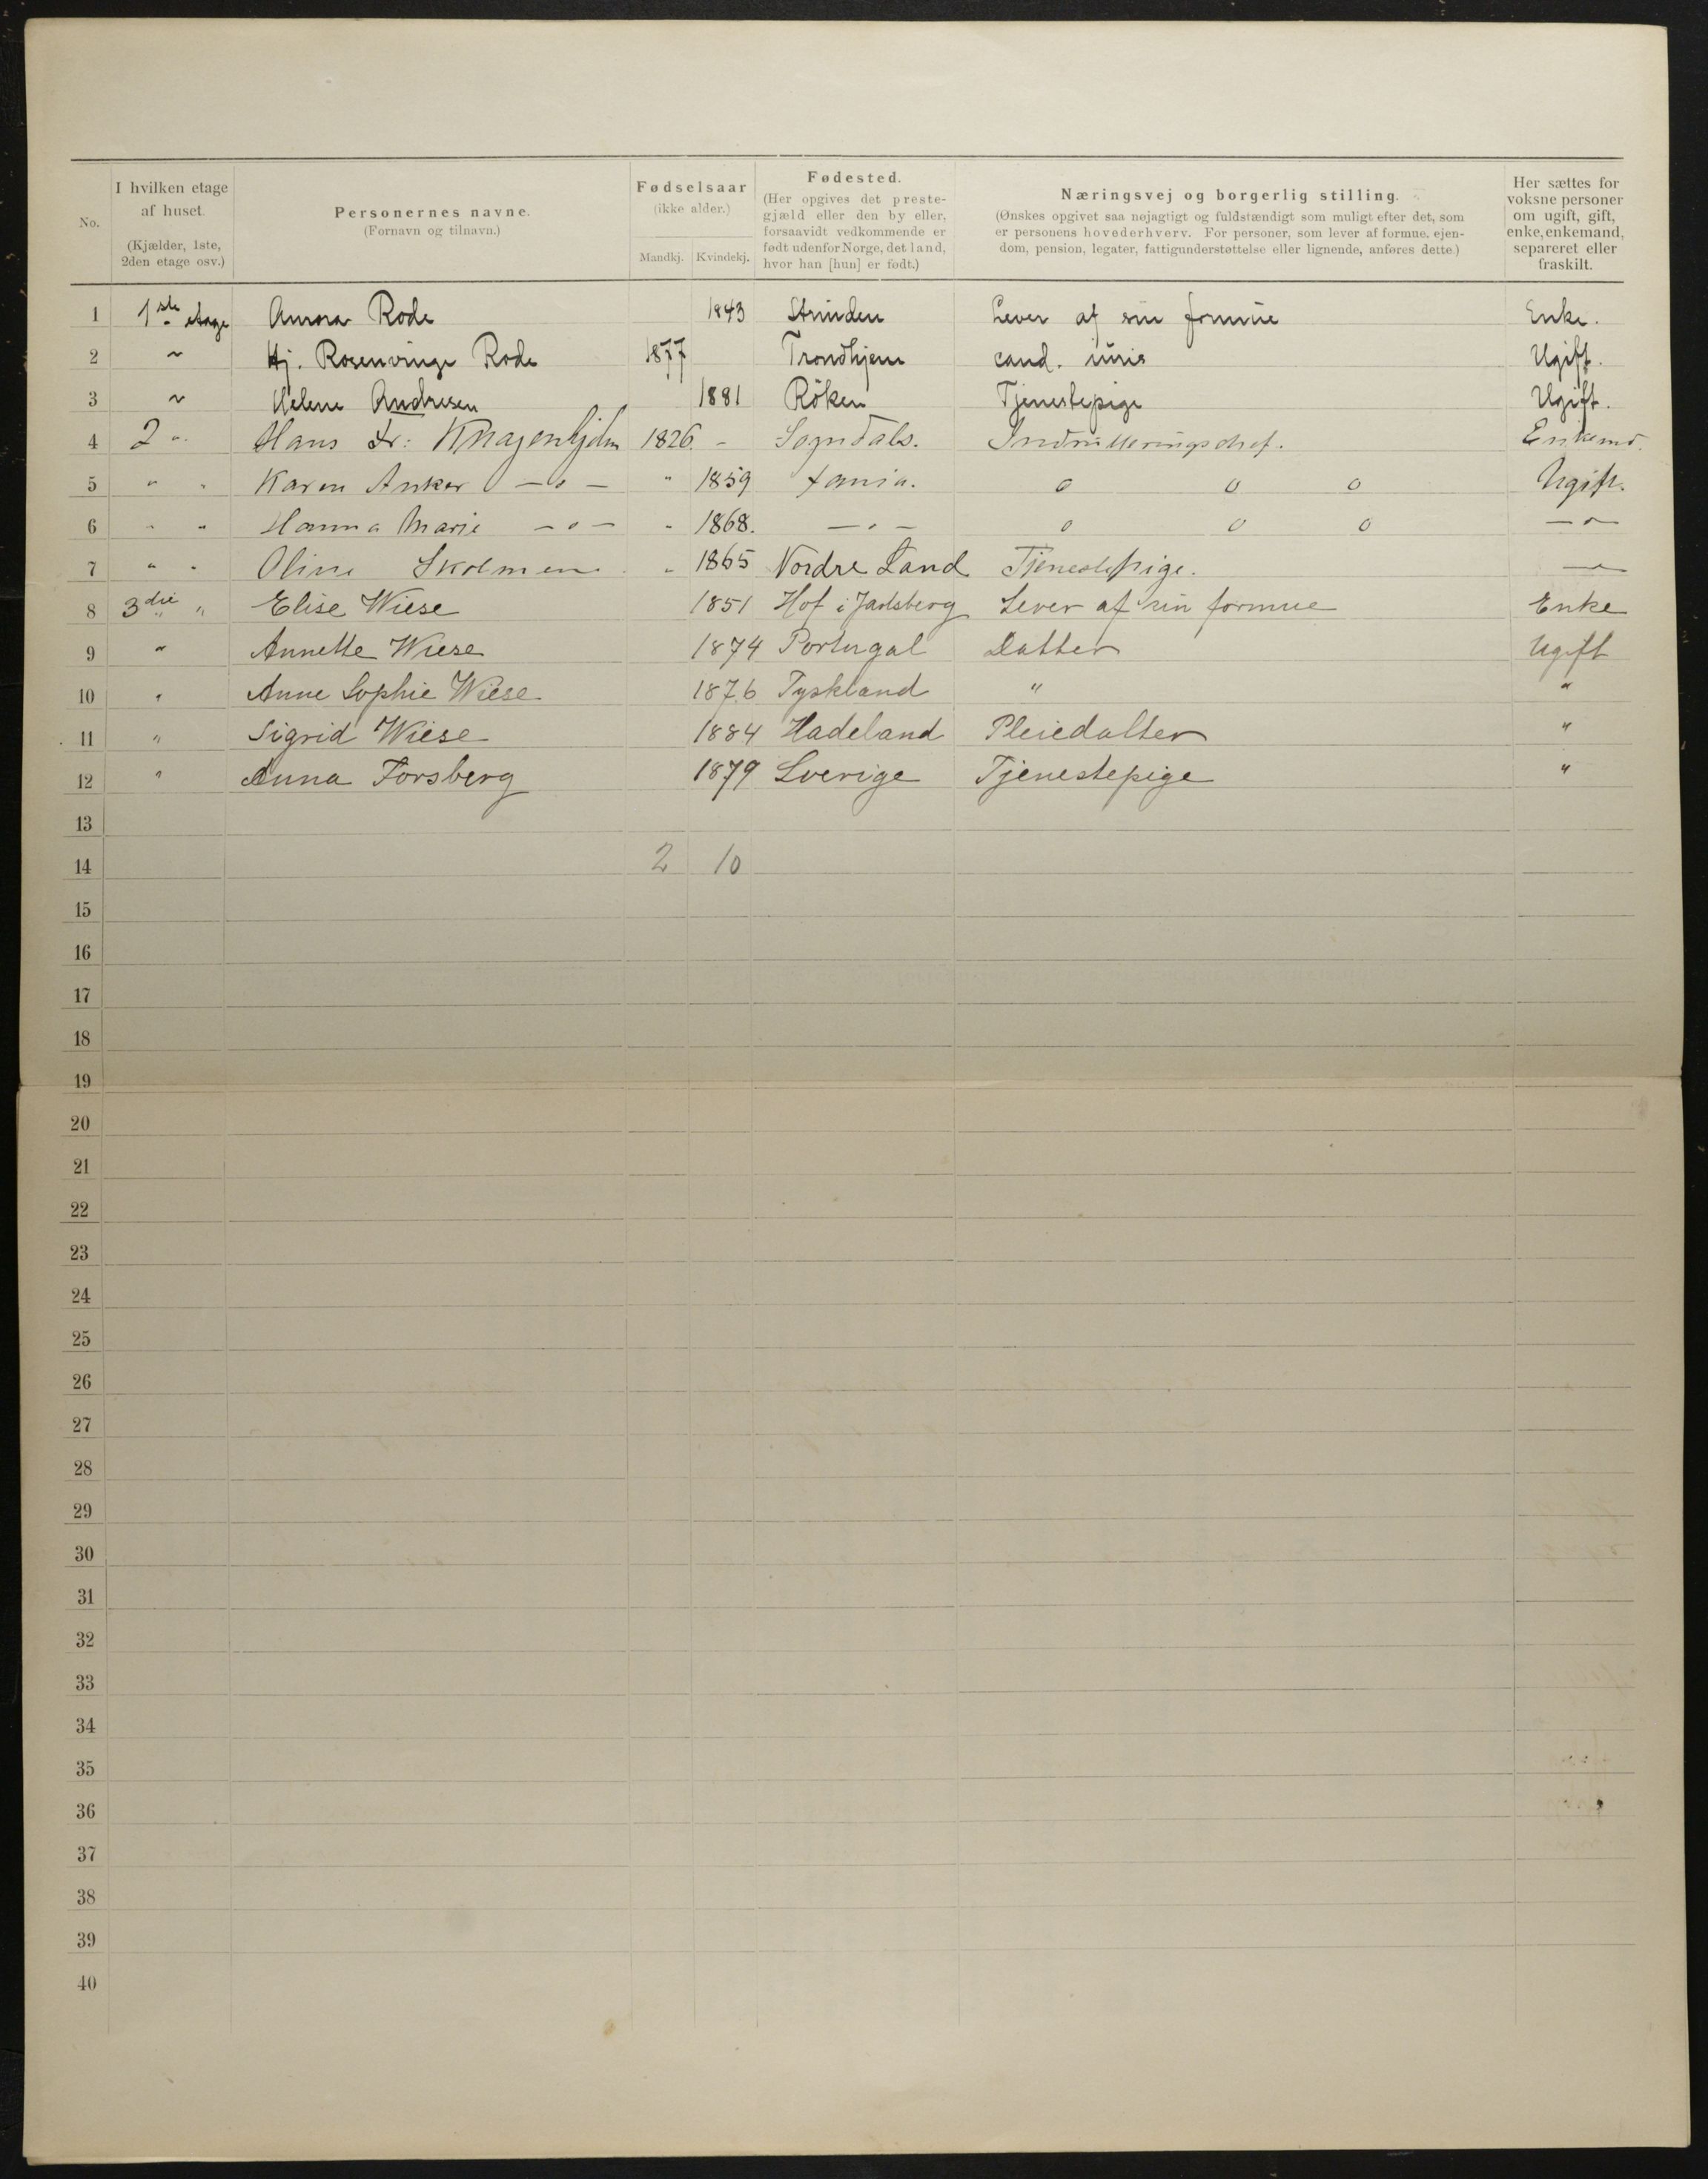 No.
I hvilken etage af huset. (Kjælder, 1ste, 2den etage osv.)
Personernes navne. (Fornavn og tilnavn.)
Fødselsaar (ikke alder.) Mandkj. Kvindekj.
Fødested. (Her opgives det prestegjæld eller den by eller, forsaavidt vedkommende er født udenfor Norge, det land, hvor han [hun] er født.)
Næringsvej og borgerlig stilling. (Ønskes opgivet saa nøjagtigt og fuldstændigt som muligt efter det, som er personens hovederhverv. For personer, som lever af formue, ejendom, pension, legater, fattigunderstøttelse eller lignende, anføres dette.)
Her sættes for voksne personer om ugift, gift, enke, enkemand, separeret eller fraskilt.
1 1ste etage Aurora Rode 1843 Strinden Lever af sin formue Enke.
2 " Hj. Rosenvinge Rode 1877 Trondhjem cand. juris Ugift.
3 " Helene Andresen 1881 Röken Tjenestepige Ugift.
4 2 " Hans Fr: Knagenhjelm 1826. - Sogndals. Indrulleringschef. Enkemd.
5 " " Karen Anker —"— " 1859 Xania. " " " Ugift.
6 " " Hanna Marie —"— " 1868. —"— " " " —"—
7 " " Oline Skolmen " 1865 Nordre Land Tjenestepige. —"—
8 3die " Elise Wiese 1851 Hof i Jarlsberg Lever af sin formue Enke
9 " Annette Wiese 1874 Portugal Datter Ugift
10 " Anne Sophie Wiese 1876 Tyskland " "
11 " Sigrid Wiese 1884 Hadeland Pleiedatter "
12 " Anna Forsberg 1879 Sverige Tjenestepige "
13
14 2 10
15
16
17
18
19
20
21
22
23
24
25
26
27
28
29
30
31
32
33
34
35
36
37
38
39
40